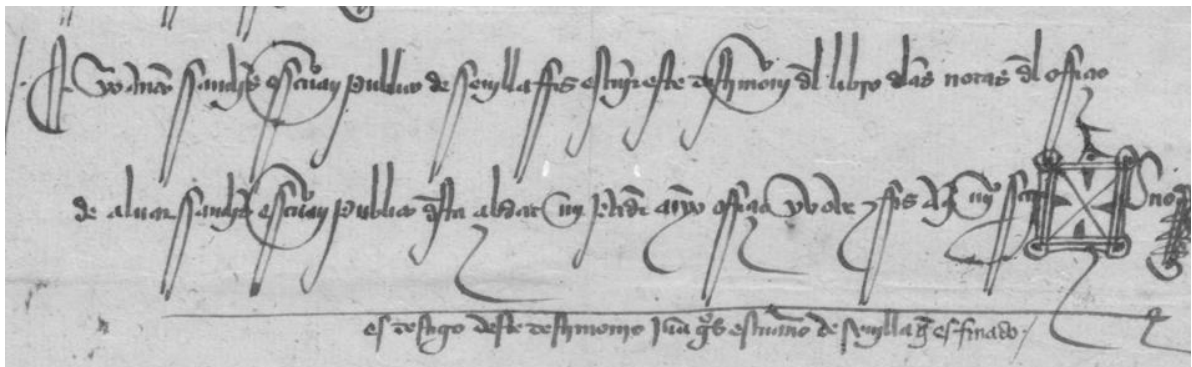 Yo anton ssanches escriuano publico de seuilla ffis escreuir este testimonio del libro delas notas del ofiçio
de aluar ssanches escriuano publico desta çibdat mi cuyo ofiçio yo oue fis aqui mio sig no
es testigo deste testimonio juan gs escriuano de seuilla q es finado